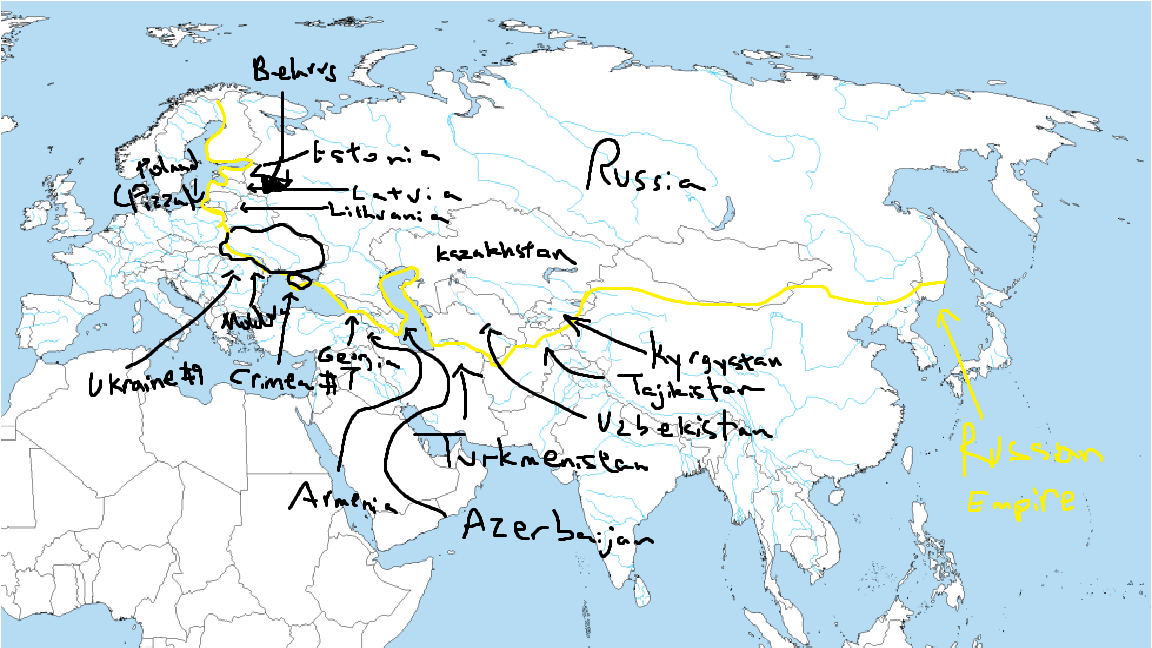 Belarus
Estonia
Poland
(Pizza)
Latvia
Lithuania
Russia
Kazakhstan
Ukraine #9
Crimea
#7
Georgia
Kyrgystan
Tajikistan
Uzbekistan
Turkmenistan
Armenia
Azerbaijan
Russian
Empire